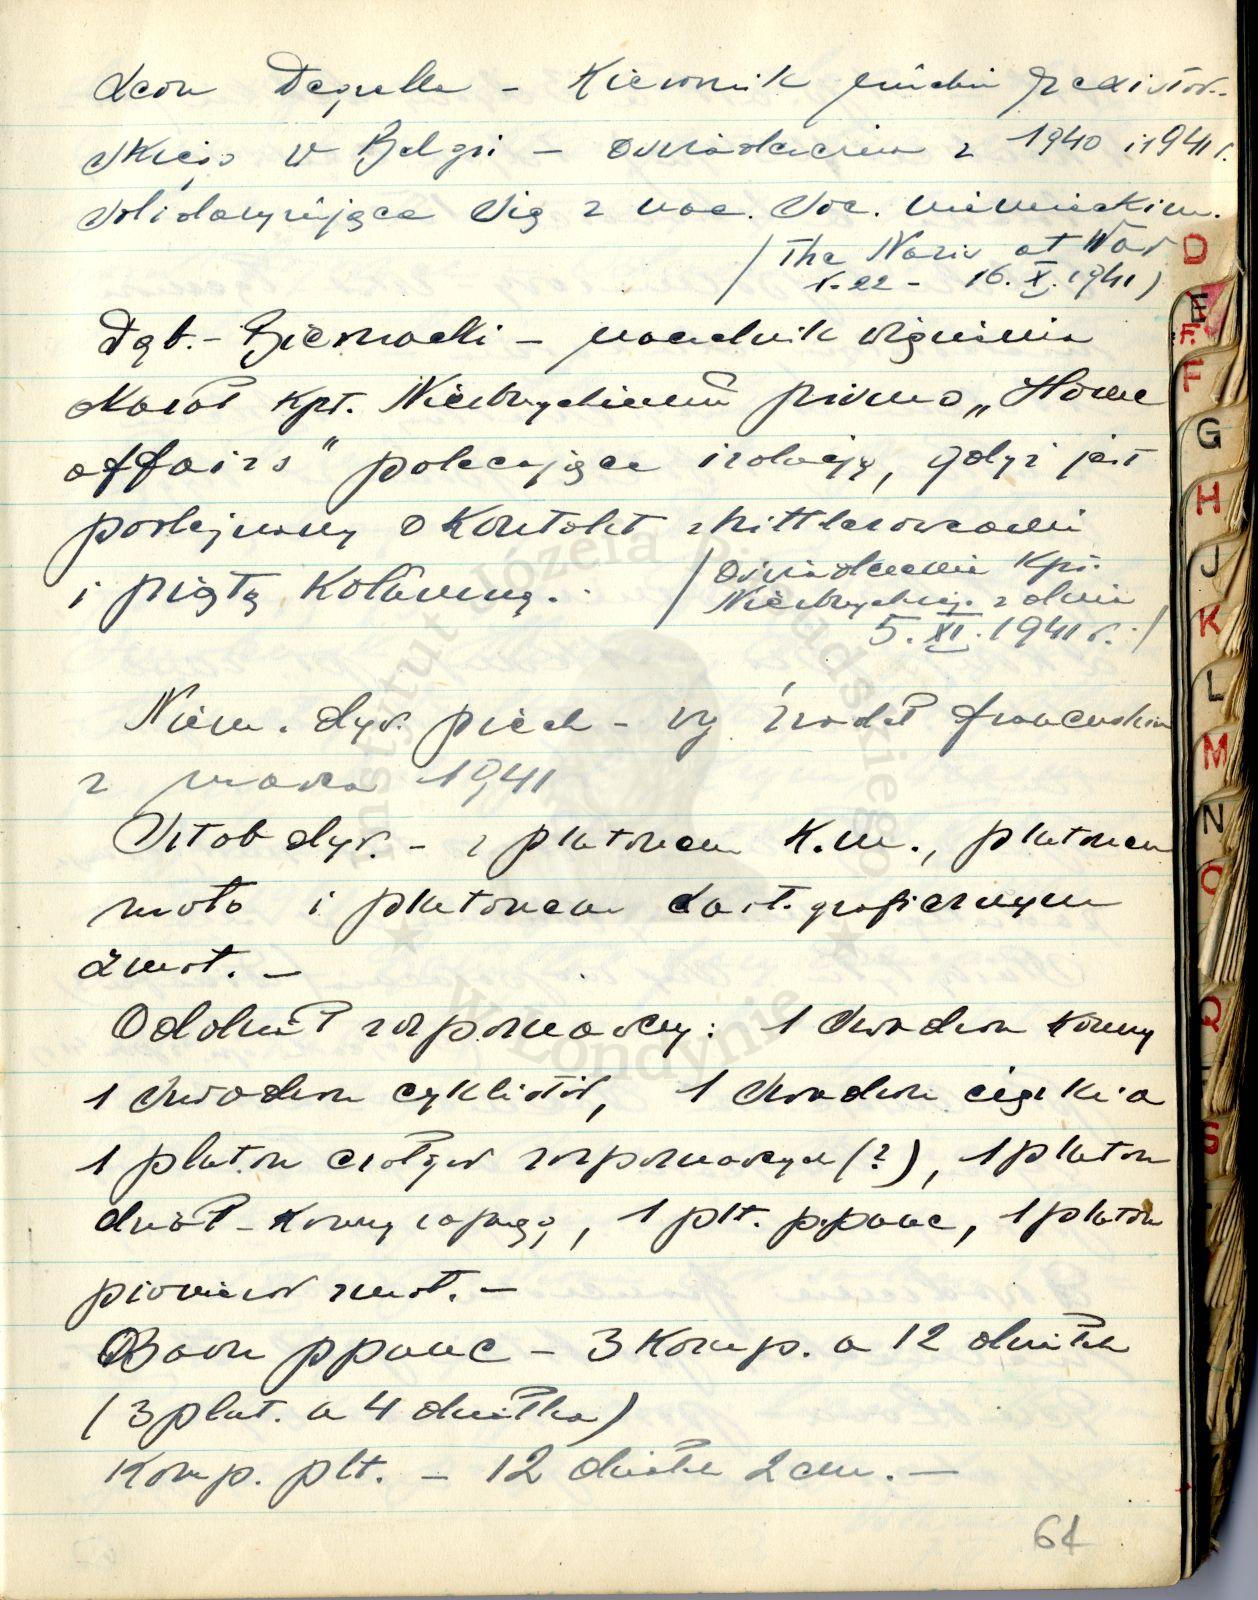 Leon Degrelle – Kierownik ruchu Rexistow-
skiego w Belgii – oświadczenia z 1940 i 1941 r.
solidaryzujące się z nac. soc. niemieckim.
/ The Nazis at War
r. 22 – 16. X. 1941)
Dąb.-Biernacki – naczelnik więzienia
okazał kpt. Niebrzydkiemu pismo „Home
affairs" polecające izolację, gdyż jest
podejrzany o kontakt z hittlerowcami
i piątą kolumną.
/ Oświadczenie kpt.
z dnia
5. XI. 1941 r. /
Niem. dyw. piech – wg źródeł francuskich
z marca 1941
Sztab dyw. – z plutonem k.m., plutonem
moto i plutonem kart.graficznym
zmot. –
Oddział rozpoznawczy: 1 szwadron konny
1 szwadron cyklistów, 1 szwadron ciężki a
1 pluton czołgów rozpoznawczych (?), 1 pluton
dział - konny zaprzęg, 1 plt. ppanc, 1 pluton
pionierów zmot. –
Baon ppanc – 3 komp. a 12 działek
(3 plut. a 4 działka)
Komp. plt. – 12 działek 2 cm. –
61
D
E
F.
F
G
H
J
K
L
M
N
O
Q
S
Instytut Józefa Piłsudskiego
w Londynie